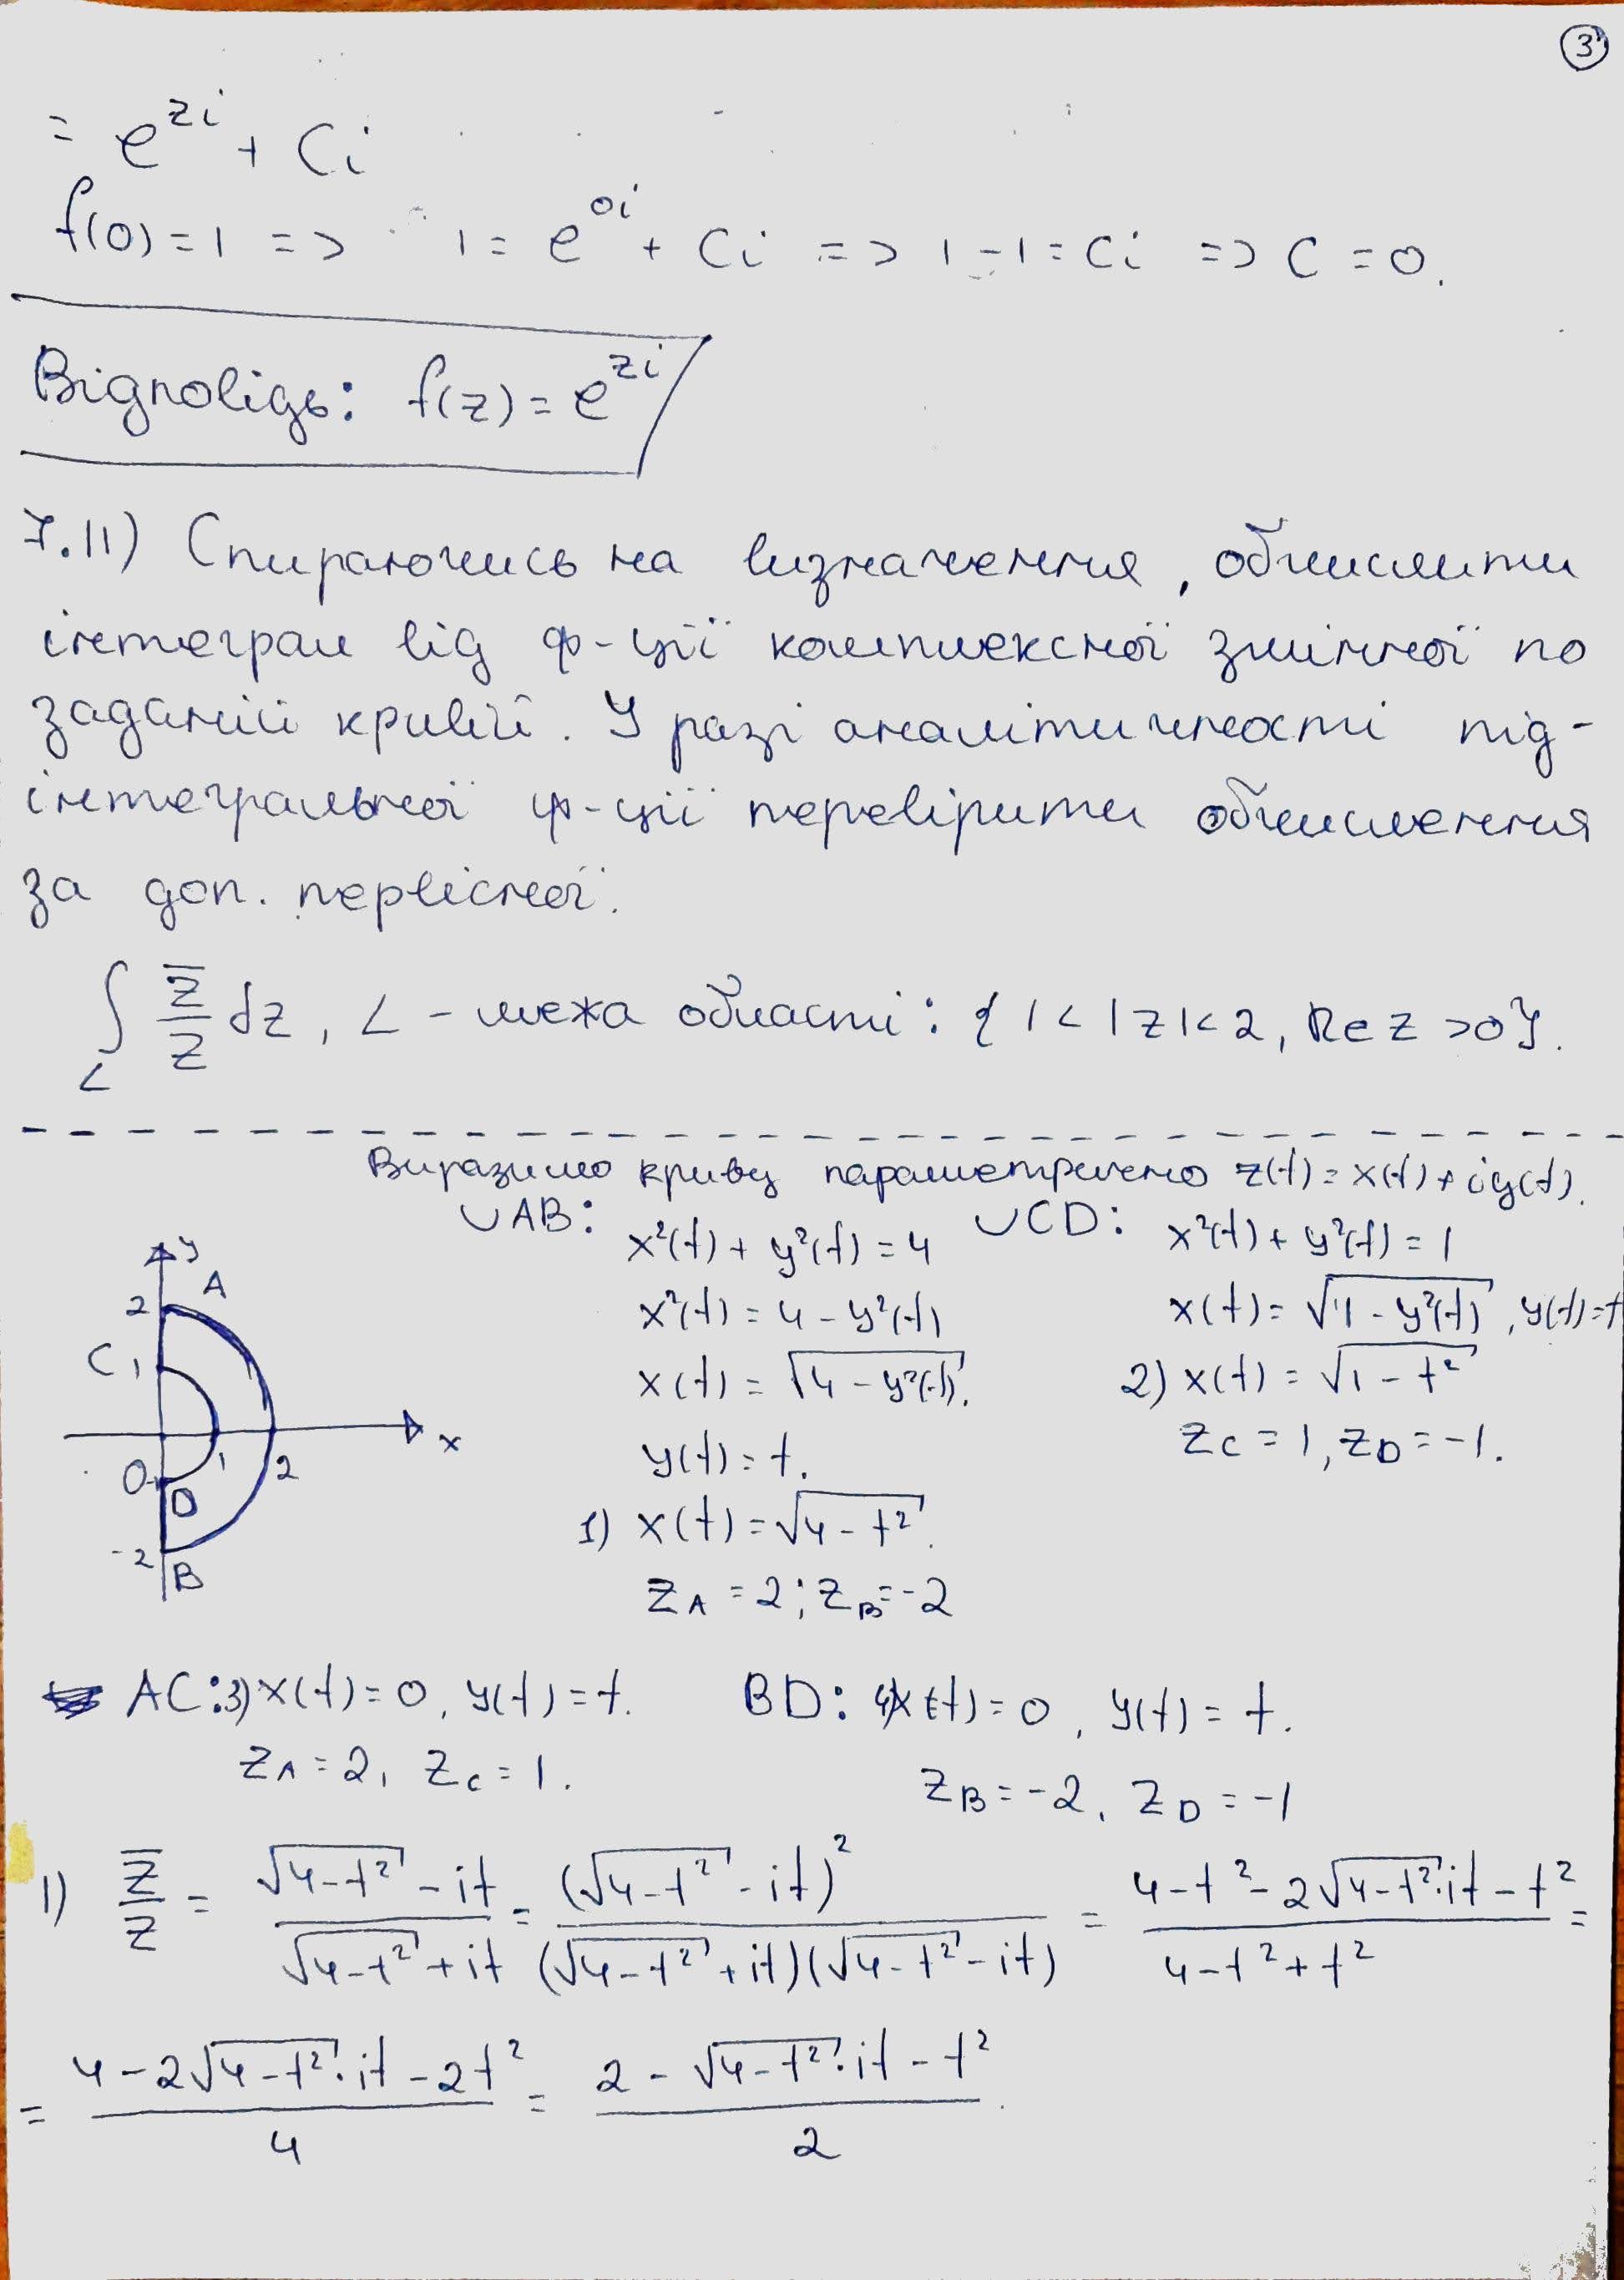 3
= e^{zi} + Ci
f(0) = 1 => 1 = e^{0i} + Ci => 1 - 1 = Ci => C = 0.
Відповідь: f(z) = e^{zi}
7.11) Спираючись на визначення, обчислити
інтеграл від ф-ції комплексної змінної по
заданій кривій. У разі аналітичності під-
інтегральної ф-ції перевірити обчислення
за доп. первісної.
∫_L \frac{\overline{z}}{z} dz, L - межа області: { 1 < |z| < 2, Re z > 0}.
Виразимо криву параметрично z(t) = x(t) + iy(t).
∪AB: x²(t) + y²(t) = 4
x²(t) = 4 - y²(t)
x(t) = √(4 - y²(t)).
y(t) = t.
1) x(t) = √(4 - t²).
z_A = 2; z_B = -2
∪CD: x²(t) + y²(t) = 1
x(t) = √(1 - y²(t)), y(t) = t
2) x(t) = √(1 - t²)
z_C = 1, z_D = -1.
y
A
2
C 1
x
0
1
2
D
-2
B
AC: 3) x(t) = 0, y(t) = t.
z_A = 2, z_C = 1.
BD: 4) x(t) = 0, y(t) = t.
z_B = -2, z_D = -1
1) \frac{\overline{z}}{z} = \frac{√(4-t²) - it}{√(4-t²) + it} = \frac{(√(4-t²) - it)²}{(√(4-t²) + it)(√(4-t²) - it)} = \frac{4 - t² - 2√(4-t²)·it - t²}{4 - t² + t²} =
= \frac{4 - 2√(4-t²)·it - 2t²}{4} = \frac{2 - √(4-t²)·it - t²}{2}.